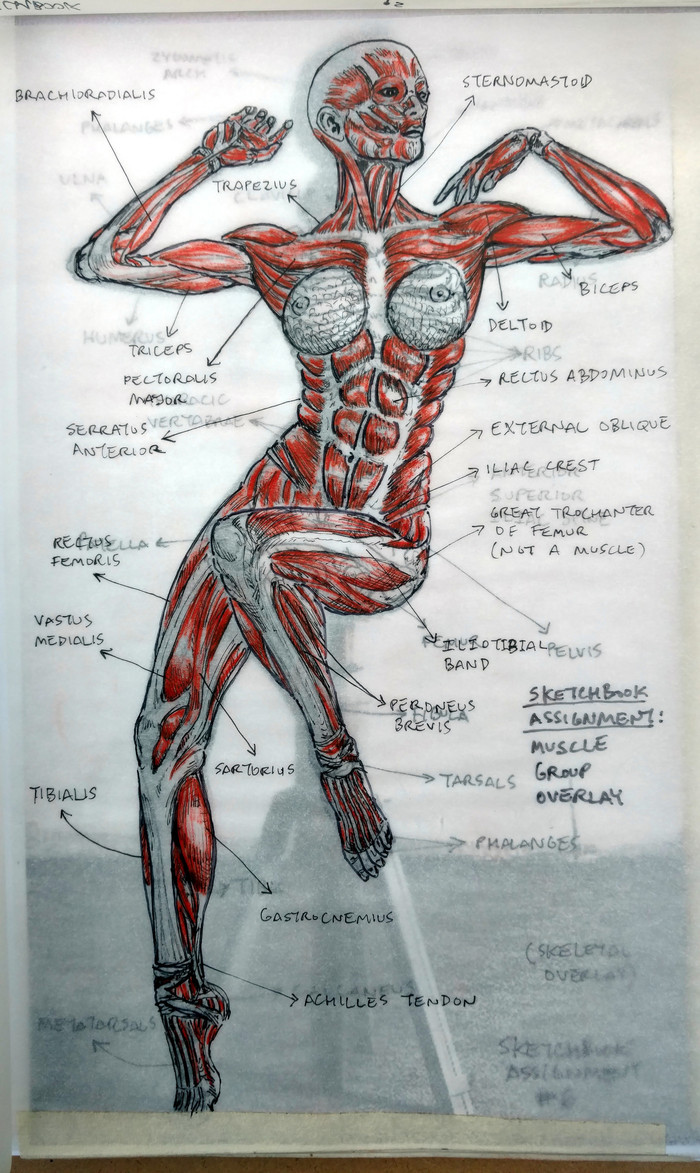 BRACHIORADIALIS
STERNOMASTOID
ZYGOMATIC
ARCH
PHALANGES
ULNA
TRAPEZIUS
RADIUS
BICEPS
HUMERUS
DELTOID
TRICEPS
RIBS
PECTOROLIS
MAJOR
RECTUS ABDOMINUS
VERTABRAE
SERRATUS
ANTERIOR
EXTERNAL OBLIQUE
ILIAC CREST
ANTERIOR
SUPERIOR
GREAT TROCHANTER
OF FEMUR
(NOT A MUSCLE)
RECTUS
FEMORIS
VASTUS
MEDIALIS
ILIOTIBIAL
BAND
PELVIS
PERONEUS
BREVIS
SKETCHBOOK
ASSIGNMENT:
MUSCLE
GROUP
OVERLAY
SARTORIUS
TARSALS
TIBIALIS
PHALANGES
GASTROCNEMIUS
(SKELETAL
OVERLAY)
ACHILLES TENDON
METATARSALS
SKETCHBOOK
ASSIGNMENT
#6